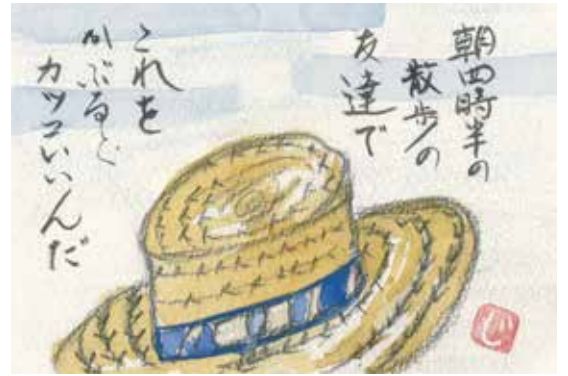 朝四時半の
散歩の
友達で
これを
かぶると
カッコいいんだ
じ